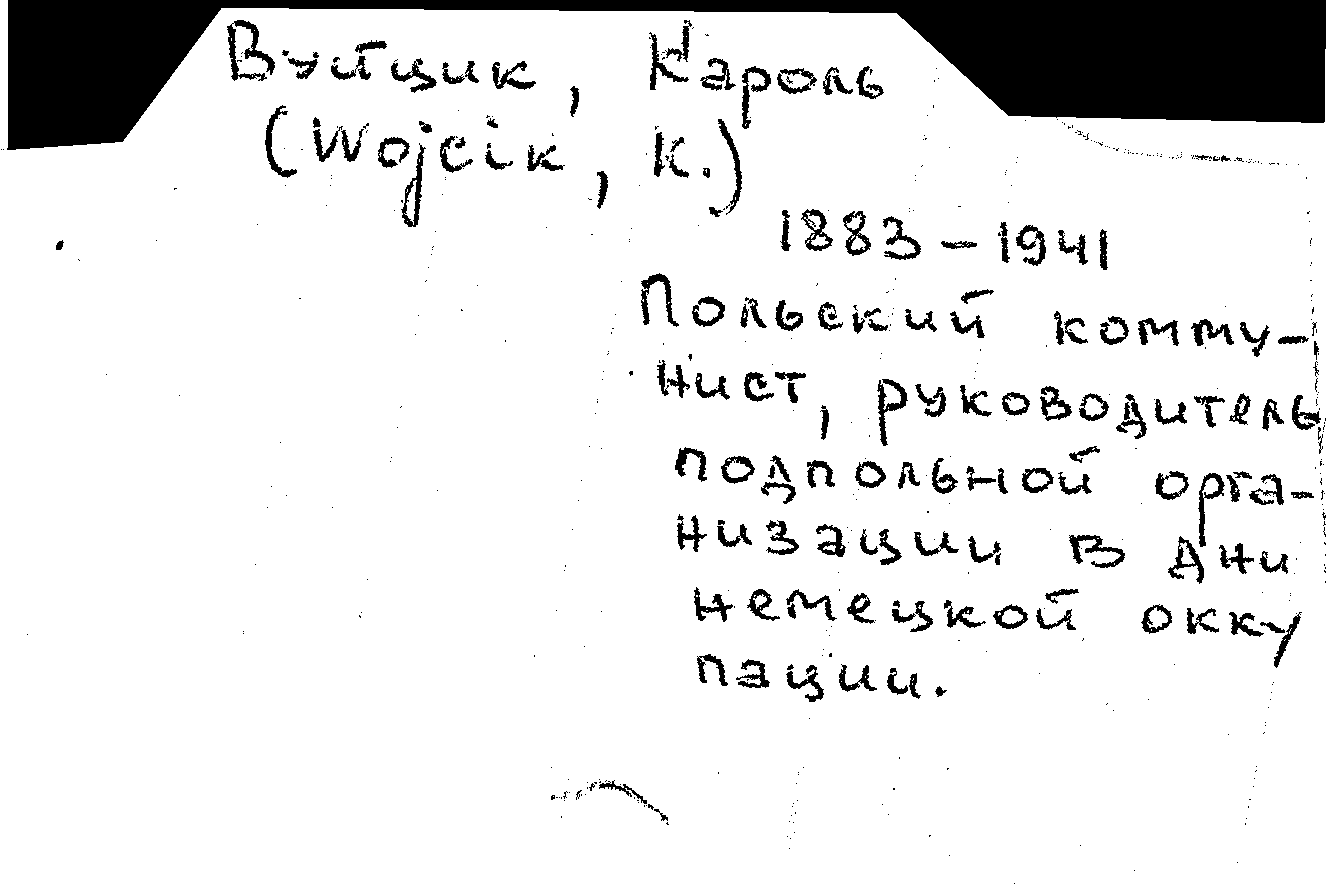 Вуйцик, Кароль
(Wojcik, K.)
1883-1941
Польский комму-
нист, руководитель
подпольной орга-
низации в дни
немецкой окку
пации.